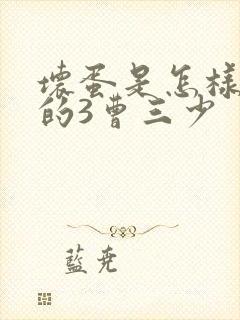 壞蛋是怎樣
的3曹三少
藍堯